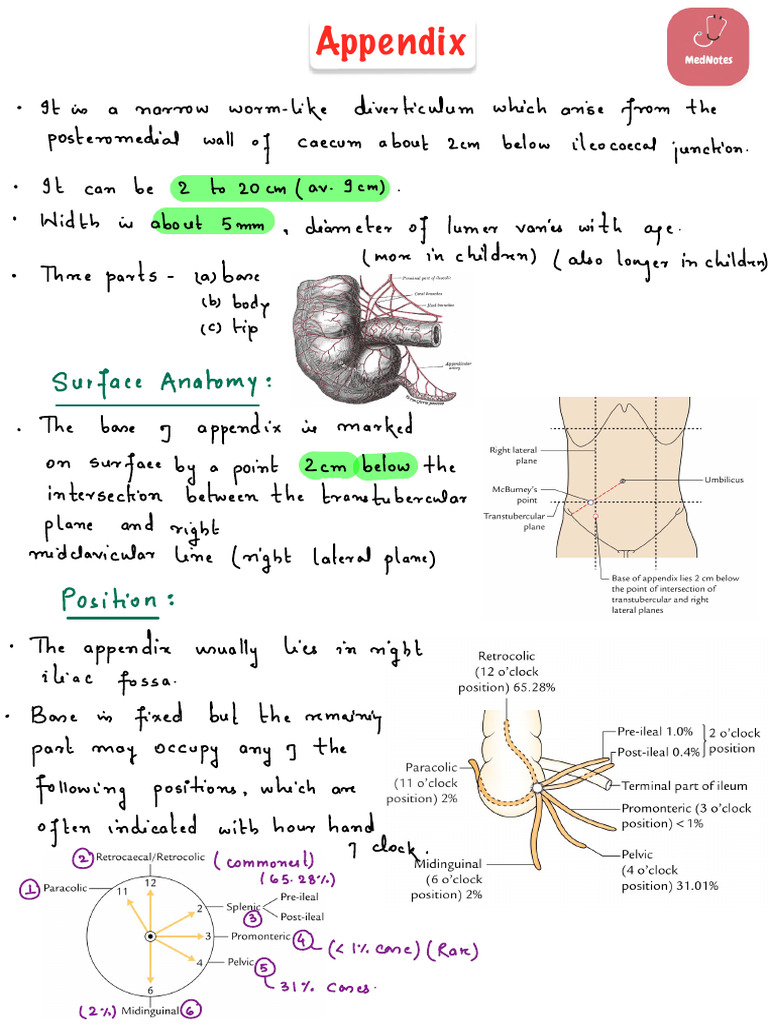 Appendix
MedNotes
• It is a narrow worm-like diverticulum which arise from the
posteromedial wall of caecum about 2cm below ileocaecal junction.
• It can be 2 to 20 cm (av. 9 cm).
• Width is about 5 mm, diameter of lumen varies with age.
(more in children) (also longer in children)
• Three parts - (a) base
(b) body
(c) tip
Proximal part of ileocolic
Cecal branches
Ileal branches
Appendicular
artery
Vermiform process
Surface Anatomy:
• The base of appendix is marked
on surface by a point 2cm below the
intersection between the transtubercular
plane and right
midclavicular line (right lateral plane)
Right lateral
plane
McBurney's
point
Transtubercular
plane
Umbilicus
Base of appendix lies 2 cm below
the point of intersection of
transtubercular and right
lateral planes
Position:
• The appendix usually lies in right
iliac fossa.
• Base is fixed but the remaining
part may occupy any of the
following positions, which are
often indicated with hour hand
of clock.
Retrocolic
(12 o'clock
position) 65.28%
Pre-ileal 1.0%
Post-ileal 0.4%
2 o'clock
position
Paracolic
(11 o'clock
position) 2%
Terminal part of ileum
Promonteric (3 o'clock
position) < 1%
Pelvic
(4 o'clock
position) 31.01%
Midinguinal
(6 o'clock
position) 2%
2 Retrocaecal/Retrocolic (commonest)
(65.28%)
1 Paracolic
11
12
2
3
4
6
Splenic
3
Pre-ileal
Post-ileal
Promonteric 4 (<1% case) (Rare)
Pelvic 5
31% cases.
(2%) Midinguinal 6